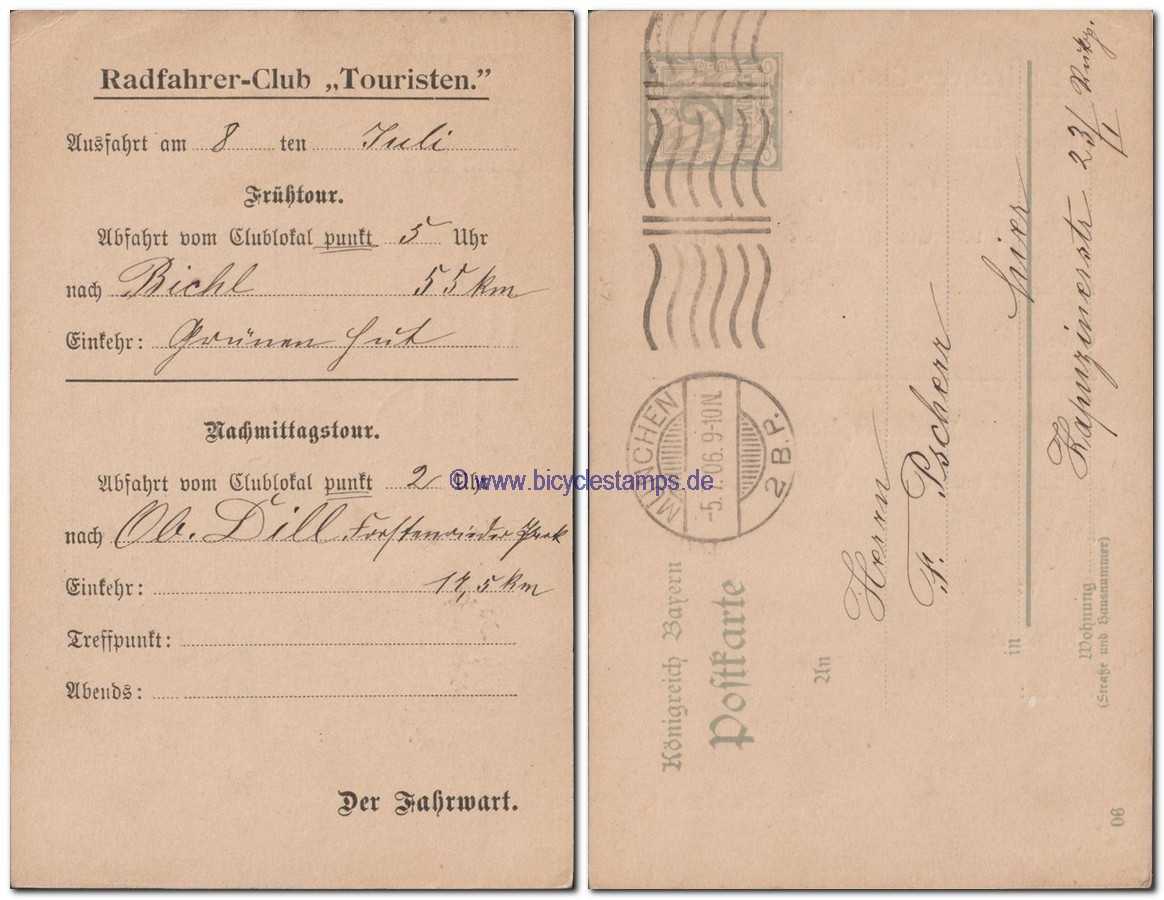 Radfahrer-Club „Touristen.”
Ausfahrt am 8 ten Juli
Frühtour.
Abfahrt vom Clublokal punkt 5 Uhr
nach Bichl 55 km
Einkehr: Grünen Hut
Nachmittagstour.
Abfahrt vom Clublokal punkt 2 Uhr
nach Ob. Dill Forstenrieder Park
Einkehr: 17,5 km
Treffpunkt:
Abends:
Der Fahrwart.
© www.bicyclestamps.de
Königreich Bayern
Postkarte
2
MÜNCHEN 2 B.P.
-5.7.06.9-10N.
An
Herrn
F. Pscherr
in hier
Wohnung Kapuzinerstr 23/I
(Straße und Hausnummer)
06